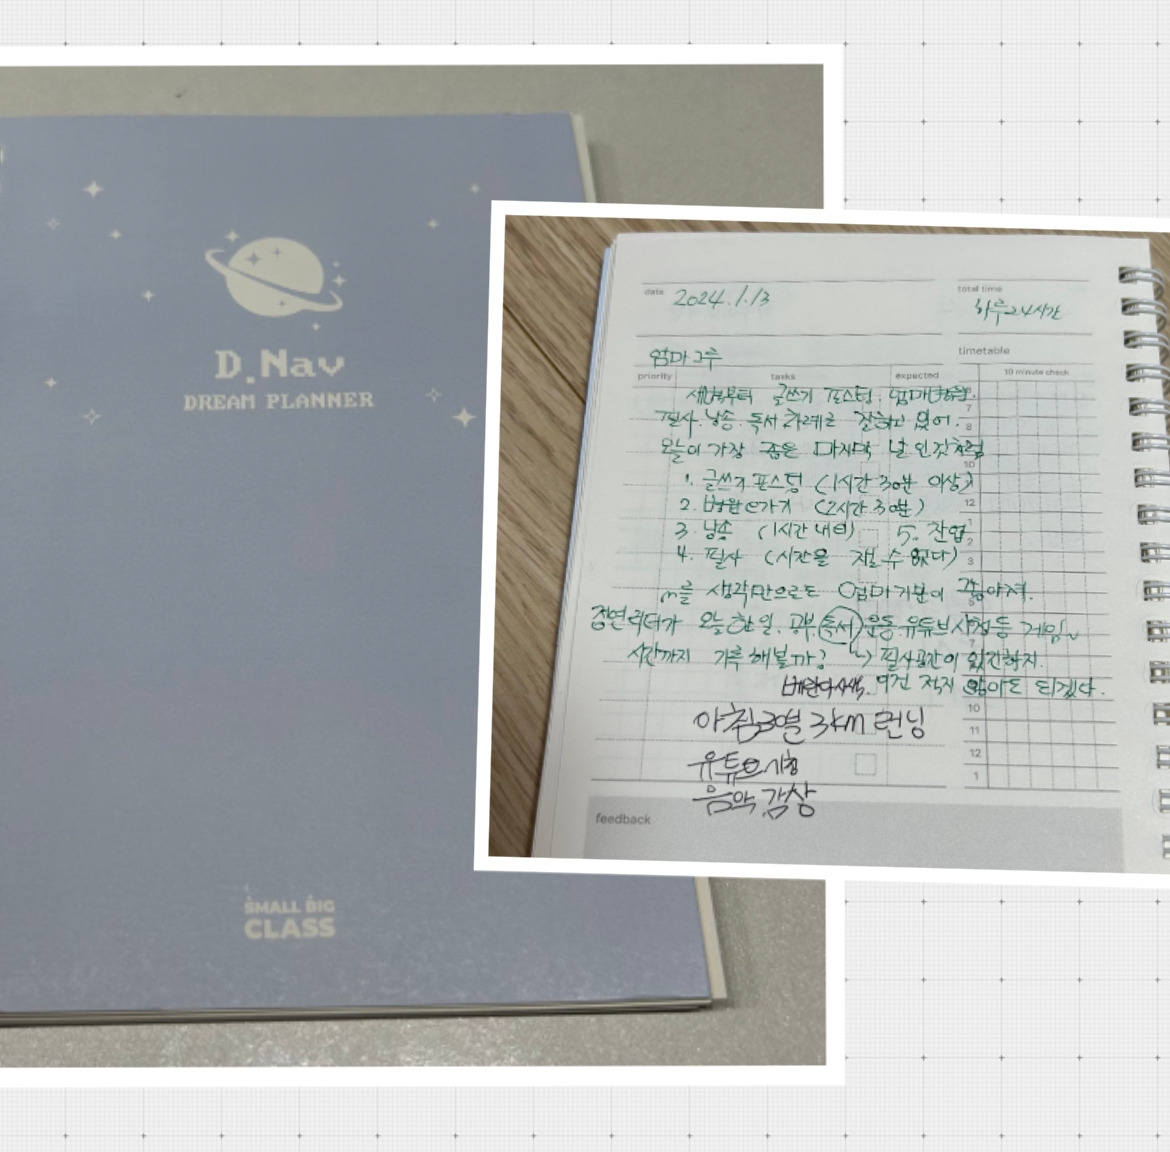 D.Nav
DREAM PLANNER
SMALL BIG
CLASS
date 2024.1.13
total time
하루24시간
엄마 그루
timetable
priority tasks expected 10 minute check
새벽부터 글쓰기 포스팅.
필사. 낭송. 독서 차례로 잘하고 있어.
오늘이 가장 좋은 마지막 날인것처럼
1. 글쓰기 포스팅 (1시간 30분 이상)
2. 병원 가기 (2시간 30분)
3. 낭송 (1시간 내외) 5. 잔업
4. 필사 (시간을 잴 수 없다)
생각만으로도 엄마 기분이 좋아져.
정연리더가 오늘 한 일. 공부 독서 운동 유튜브시청 등 게임
시간까지 기록해볼까? 필사공간이 있긴하지.
이건 적지 않아도 되겠다.
10
아침3열 3km 런닝
11
12
유튜브시청
1
음악감상
feedback